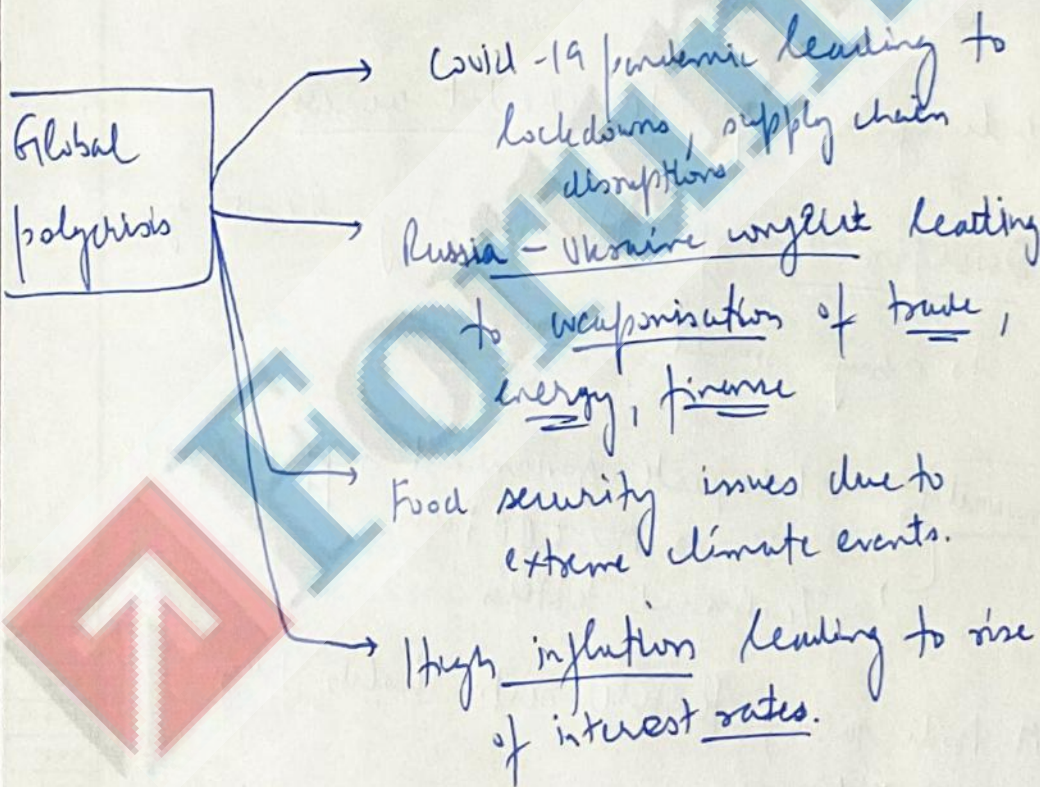 Global
polycrisis
Covid-19 pandemic leading to
lockdowns, supply chain
disruptions
Russia - Ukraine conflict leading
to weaponisation of trade,
energy, finance
Food security issues due to
extreme climate events.
High inflation leading to rise
of interest rates.
Forum